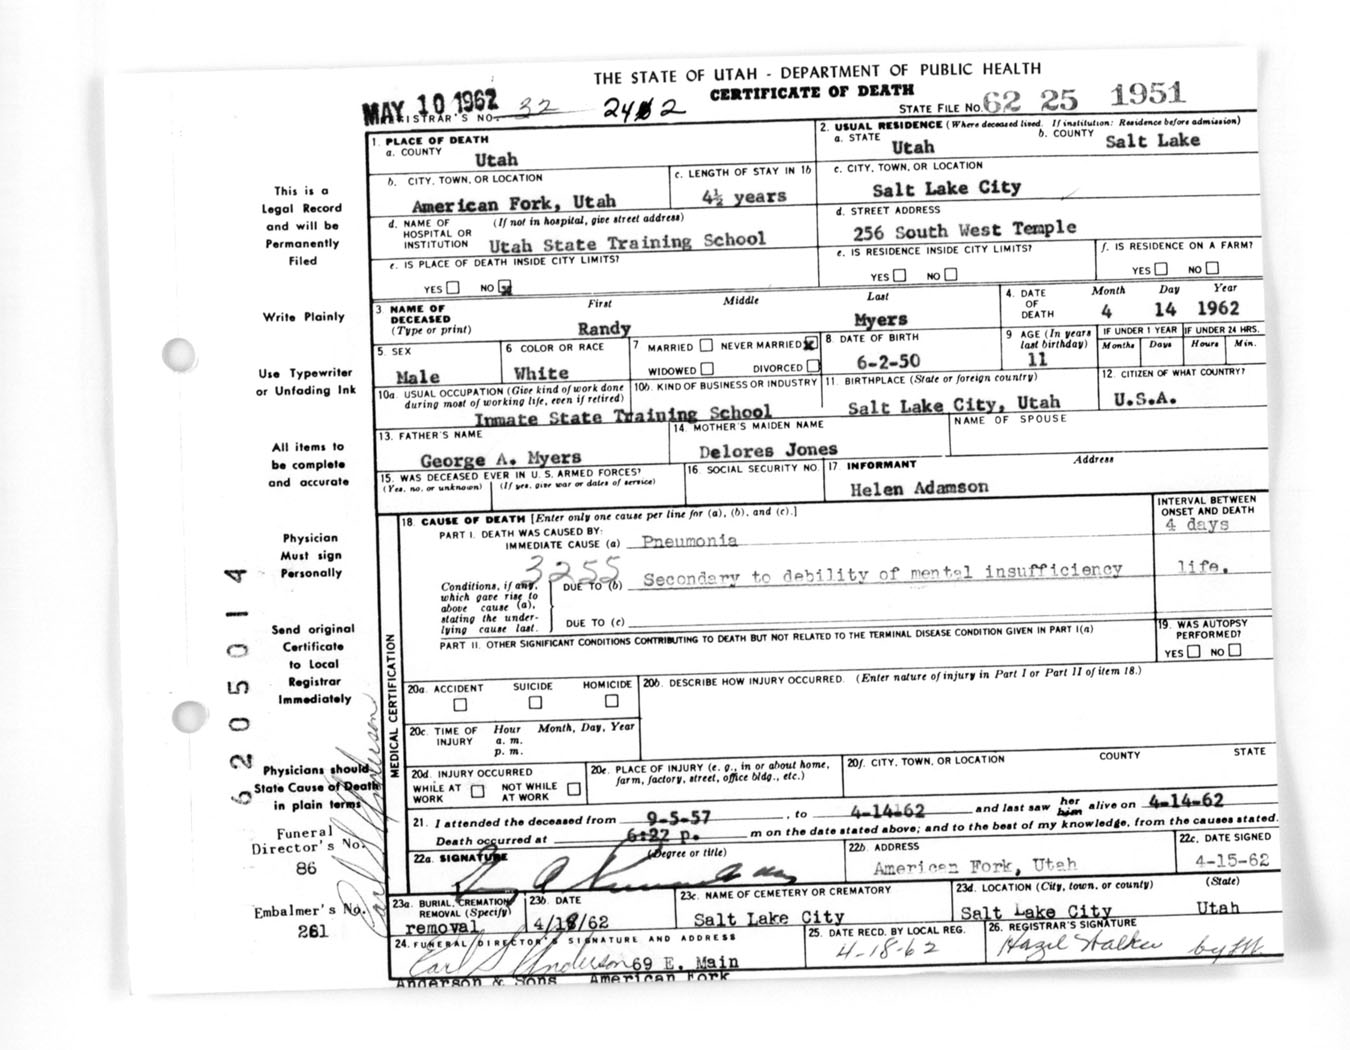 THE STATE OF UTAH - DEPARTMENT OF PUBLIC HEALTH
CERTIFICATE OF DEATH
MAY 10 1962
ISTRAR'S NO. 32 2462
STATE FILE NO. 62 25 1951
1. PLACE OF DEATH
a. COUNTY Utah
2. USUAL RESIDENCE (Where deceased lived. If institution: Residence before admission)
a. STATE Utah b. COUNTY Salt Lake
b. CITY, TOWN, OR LOCATION American Fork, Utah
c. LENGTH OF STAY IN 1b 4½ years
c. CITY, TOWN, OR LOCATION Salt Lake City
d. NAME OF HOSPITAL OR INSTITUTION (If not in hospital, give street address) Utah State Training School
d. STREET ADDRESS 256 South West Temple
e. IS PLACE OF DEATH INSIDE CITY LIMITS? YES NO
e. IS RESIDENCE INSIDE CITY LIMITS? YES NO
f. IS RESIDENCE ON A FARM? YES NO
3 NAME OF DECEASED (Type or print) First Randy Middle Last Myers
4. DATE OF DEATH Month 4 Day 14 Year 1962
5. SEX Male
6 COLOR OR RACE White
7 MARRIED NEVER MARRIED WIDOWED DIVORCED
8. DATE OF BIRTH 6-2-50
9 AGE (In years last birthday) 11
IF UNDER 1 YEAR Months Days
IF UNDER 24 HRS. Hours Min.
10a. USUAL OCCUPATION (Give kind of work done during most of working life, even if retired) Inmate State Training School
10b. KIND OF BUSINESS OR INDUSTRY
11. BIRTHPLACE (State or foreign country) Salt Lake City, Utah
12. CITIZEN OF WHAT COUNTRY? U.S.A.
13. FATHER'S NAME George A. Myers
14. MOTHER'S MAIDEN NAME Delores Jones
NAME OF SPOUSE
15. WAS DECEASED EVER IN U. S. ARMED FORCES? (Yes, no, or unknown) (If yes, give war or dates of service)
16. SOCIAL SECURITY NO.
17. INFORMANT Helen Adamson Address
18. CAUSE OF DEATH [Enter only one cause per line for (a), (b), and (c).]
INTERVAL BETWEEN ONSET AND DEATH
PART I. DEATH WAS CAUSED BY:
IMMEDIATE CAUSE (a) Pneumonia 4 days
3255
Conditions, if any, which gave rise to above cause (a), stating the underlying cause last.
DUE TO (b) Secondary to debility of mental insufficiency life.
DUE TO (c)
PART II. OTHER SIGNIFICANT CONDITIONS CONTRIBUTING TO DEATH BUT NOT RELATED TO THE TERMINAL DISEASE CONDITION GIVEN IN PART I(a)
19. WAS AUTOPSY PERFORMED? YES NO
20a. ACCIDENT SUICIDE HOMICIDE
20b. DESCRIBE HOW INJURY OCCURRED. (Enter nature of injury in Part I or Part II of item 18.)
20c. TIME OF INJURY Hour a. m. p. m. Month, Day, Year
20d. INJURY OCCURRED WHILE AT WORK NOT WHILE AT WORK
20e. PLACE OF INJURY (e. g., in or about home, farm, factory, street, office bldg., etc.)
20f. CITY, TOWN, OR LOCATION COUNTY STATE
21. I attended the deceased from 9-5-57, to 4-14-62 and last saw her him alive on 4-14-62
Death occurred at 6:27 p. m on the date stated above; and to the best of my knowledge, from the causes stated.
22a. SIGNATURE (Degree or title)
22b. ADDRESS American Fork, Utah
22c. DATE SIGNED 4-15-62
23a. BURIAL, CREMATION, REMOVAL (Specify) removal
23b. DATE 4/18/62
23c. NAME OF CEMETERY OR CREMATORY Salt Lake City
23d. LOCATION (City, town, or county) (State) Salt Lake City Utah
24. FUNERAL DIRECTOR'S SIGNATURE AND ADDRESS
Earl S Anderson 69 E. Main
Anderson & Sons American Fork
25. DATE RECD. BY LOCAL REG. 4-18-62
26. REGISTRAR'S SIGNATURE Hazel Walker by
MEDICAL CERTIFICATION
This is a
Legal Record
and will be
Permanently
Filed
Write Plainly
Use Typewriter
or Unfading Ink
All items to
be complete
and accurate
Physician
Must sign
Personally
Send original
Certificate
to Local
Registrar
Immediately
Physicians should
State Cause of Death
in plain terms
Funeral
Director's No.
86
Embalmer's No.
261
Earl S Anderson
62 05014